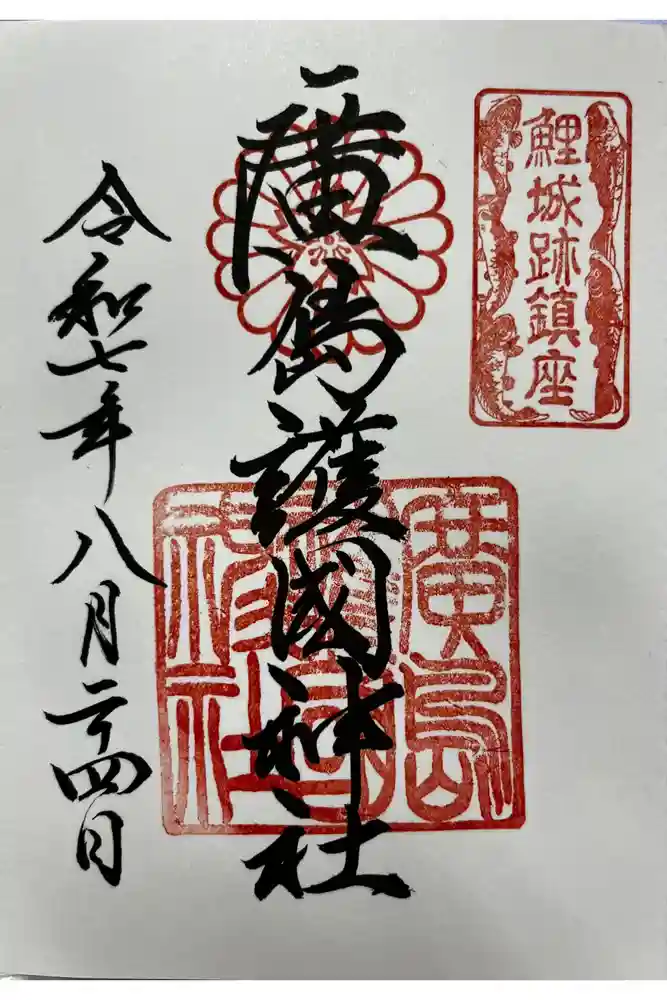 鯉城跡鎮座
廣島護國神社
廣島
護國
神社
令和七年八月二十四日